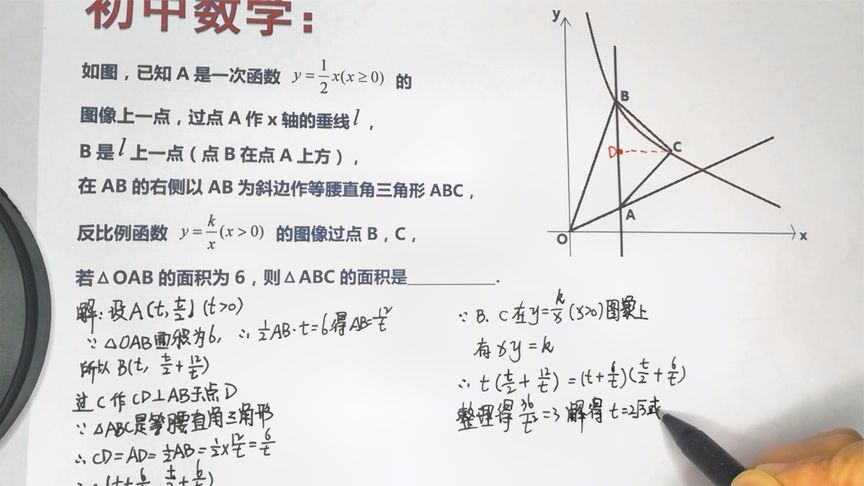 初中数学:
如图，已知 A 是一次函数 y=1/2x(x≥0) 的
图像上一点，过点 A 作 x 轴的垂线 l ，
B 是 l 上一点（点 B 在点 A 上方），
在 AB 的右侧以 AB 为斜边作等腰直角三角形 ABC，
反比例函数 y=k/x(x>0) 的图像过点 B，C，
若△OAB 的面积为 6，则△ABC 的面积是________.
解：设A(t, t/2) (t>0)
∵ △OAB面积为6, ∴ 1/2AB·t=6得AB=12/t
所以 B(t, t/2+12/t)
过C作CD⊥AB于点D
∵ △ABC是等腰直角三角形
∴ CD=AD=1/2AB=1/2×12/t=6/t
∴ C(t+6/t, t/2+6/t)
∵ B、C在y=k/x(x>0)图象上
有xy=k
∴ t(t/2+12/t)=(t+6/t)(t/2+6/t)
整理得36/t²=3 解得 t=2√3
y
B
D
C
A
O
x